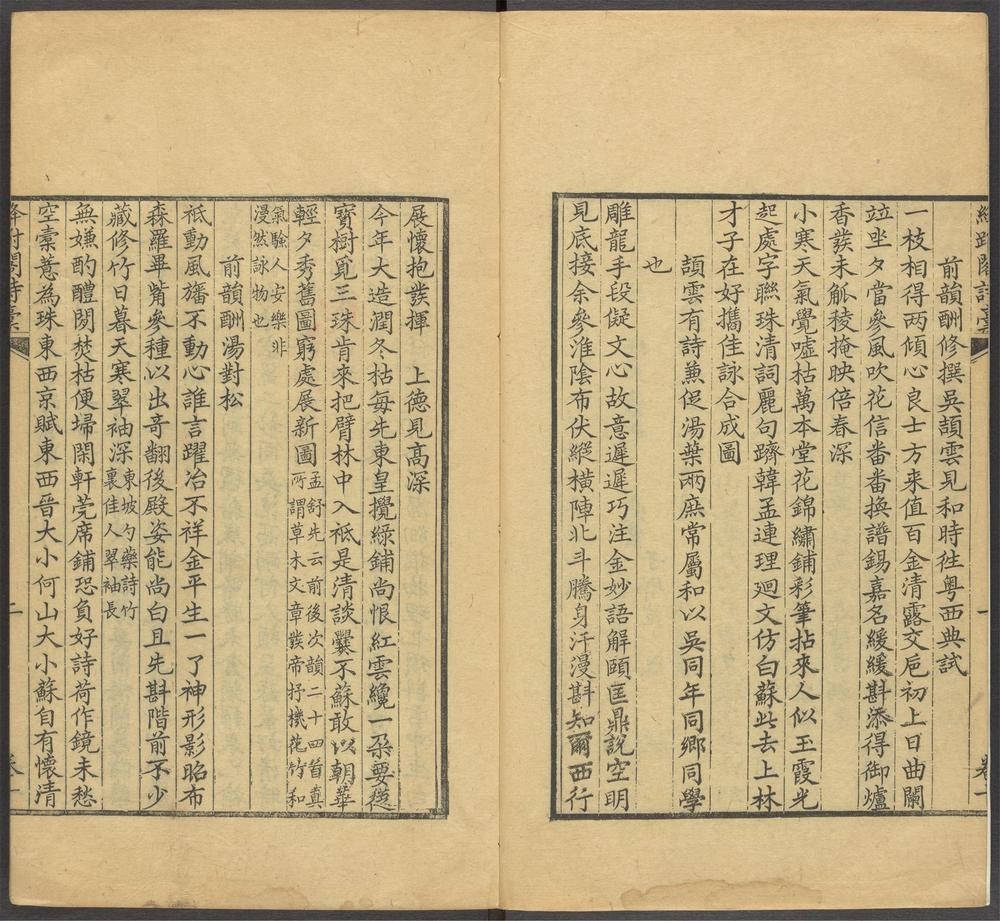 前韻酬修撰吳頡雲見和時徃粤西典試
一枝相得两傾心良士方来值百金清露交巵初上日曲闌
竝坐夕當參風吹花信畨畨換譜錫嘉名緩緩斟添得御爐
香裝未觚稜掩映倍春深
小寒天氣覺嘘枯萬本堂花錦繡鋪彩筆拈來人似玉霞光
起處字聯珠清詞麗句躋韓孟連理廻文仿白蘇此去上林
才子在好攜佳詠合成圖
頡雲有詩兼促湯葉兩庶常屬和以吳同年同鄉同學
也
雕龍手段儗文心故意遲遲巧注金妙語解頤匡鼎說空明
見底接余參淮陰布伏縱橫陣北斗騰身汗漫斟知爾西行
展懷抱裝揮　上德見高深
今年大造潤冬枯每先東皇攪綠鋪尚恨紅雲纔一朶要從
寳樹覓三珠肯来把臂林中入祇是清談爨不蘇敢以朝華
輕夕秀舊圖窮處展新圖孟舒先云前後次韻二十四首真
所謂草木文章裝帝抒機花竹和
氣驗人安樂非
漫然詠物也
前韻酬湯對松
祇動風旛不動心誰言躍冶不祥金平生一了神形影昭布
森羅畢觜參種以出竒翻後殿姿能尚白且先斟階前不少
藏修竹日暮天寒翠袖深東坡勺藥詩竹
裏佳人翠袖長
無嫌酌醴閱焚枯便埽閑軒莞席鋪恐負好詩荷作鏡未愁
空橐薏為珠東西京賦東西晉大小何山大小蘇自有懷清
二